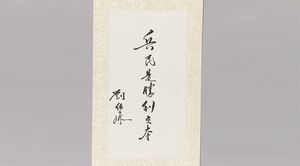 兵民是勝利之本
劉伯承